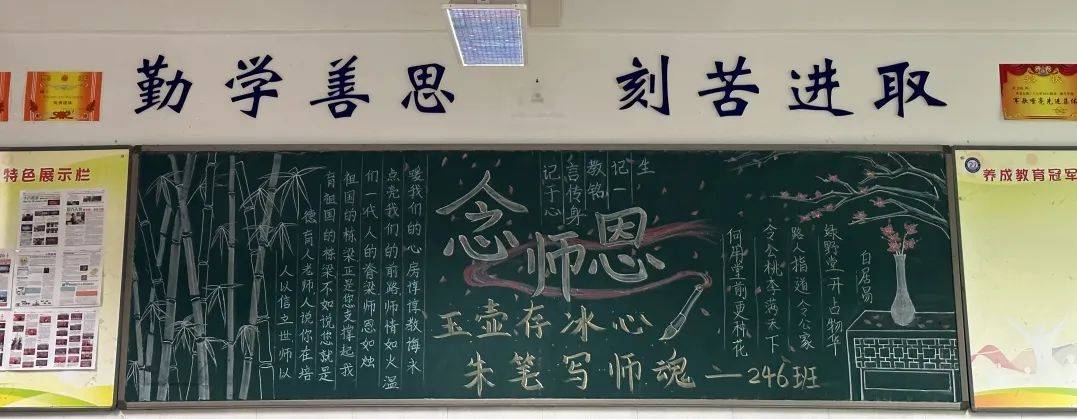 勤学善思 刻苦进取
特色展示栏
养成教育冠军
奖状
军歌嘹亮先进集体
人以信立世师以
德育人老师人说你在培
育祖国的栋梁不如说您就是
祖国的栋梁正是您支撑起我
们一代人的脊梁师恩如烛
点亮我们的前路师情如火温
暖我们的心房谆谆教悔永
记于心
言传身
教铭
记一
生
念师恩
玉壶存冰心
朱笔写师魂—246班
白居易
绿野堂开占物华
路人指道令公家
令公桃李满天下
何用堂前更种花